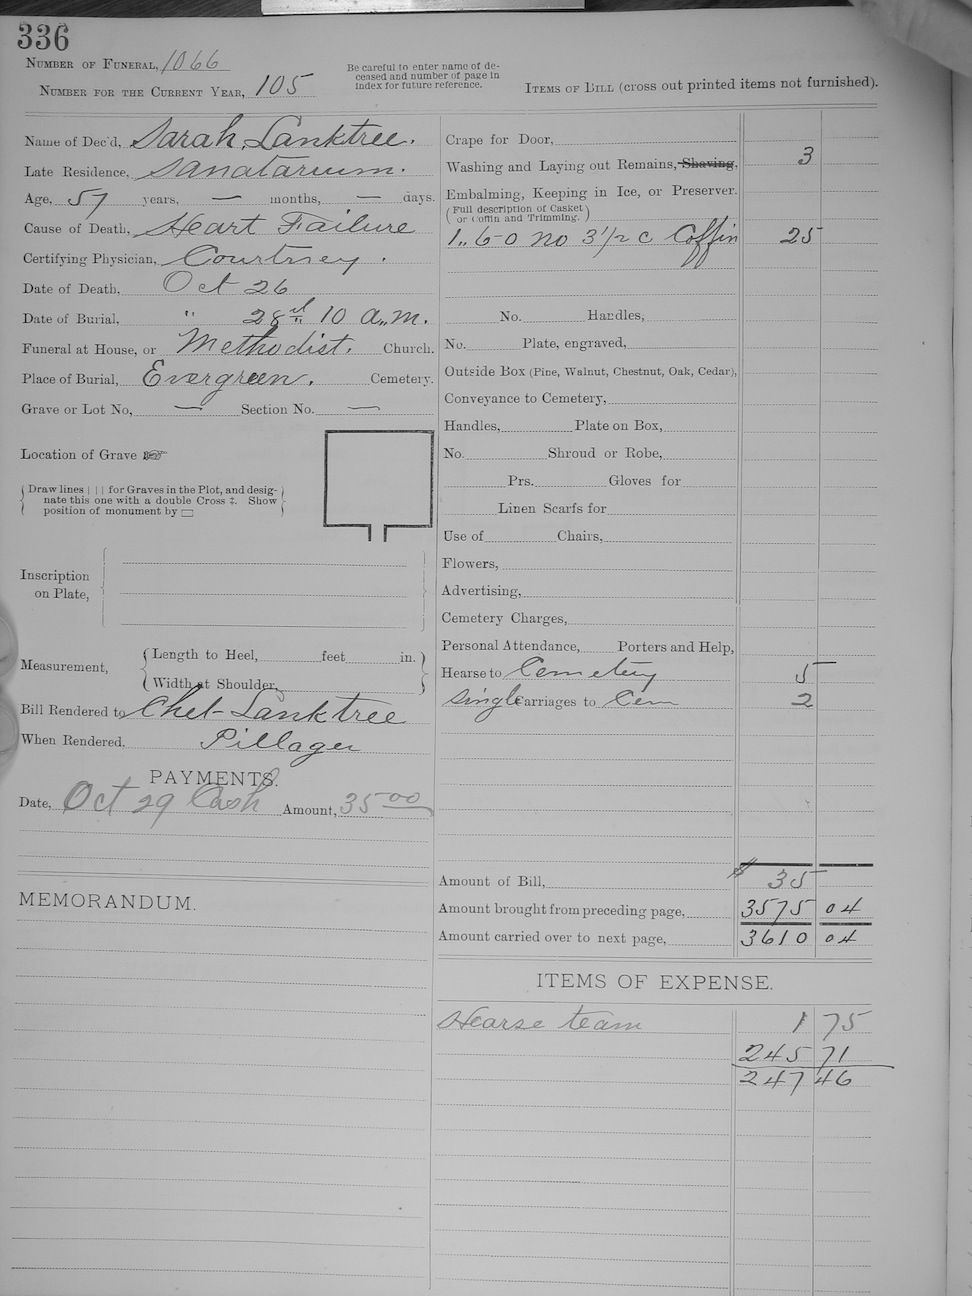 336
Number of Funeral, 1066
Number for the Current Year, 105
Be careful to enter name of de-
ceased and number of page in
index for future reference.
Items of Bill (cross out printed items not furnished).
Name of Dec'd, Sarah Lanktree.
Late Residence, Sanatarium.
Age, 57 years, — months, — days.
Cause of Death, Heart Failure
Certifying Physician, Courtney.
Date of Death, Oct 26
Date of Burial, " 28th 10 a.m.
Funeral at House, or Methodist. Church.
Place of Burial, Evergreen. Cemetery.
Grave or Lot No, — Section No. —
Location of Grave ☞
Draw lines | | | for Graves in the Plot, and desig-
nate this one with a double Cross ‡. Show
position of monument by ▭
Inscription
on Plate,
Measurement,
Length to Heel, feet in.
Width at Shoulder,
Bill Rendered to Chet Lanktree
When Rendered, Pillager
PAYMENTS.
Date, Oct 29 Cash Amount, 35 00
MEMORANDUM.
Crape for Door,
Washing and Laying out Remains, Shaving, 3
Embalming, Keeping in Ice, or Preserver.
(Full description of Casket
or Coffin and Trimming.)
1 6-0 no 3 1/2 c Coffin 25
No. Handles,
No. Plate, engraved,
Outside Box (Pine, Walnut, Chestnut, Oak, Cedar),
Conveyance to Cemetery,
Handles, Plate on Box,
No. Shroud or Robe,
Prs. Gloves for
Linen Scarfs for
Use of Chairs,
Flowers,
Advertising,
Cemetery Charges,
Personal Attendance, Porters and Help,
Hearse to Cemetery 5
Single Carriages to Cem 2
Amount of Bill, $ 35
Amount brought from preceding page, 3575 04
Amount carried over to next page, 3610 04
ITEMS OF EXPENSE.
Hearse team 1 75
245 71
247 46